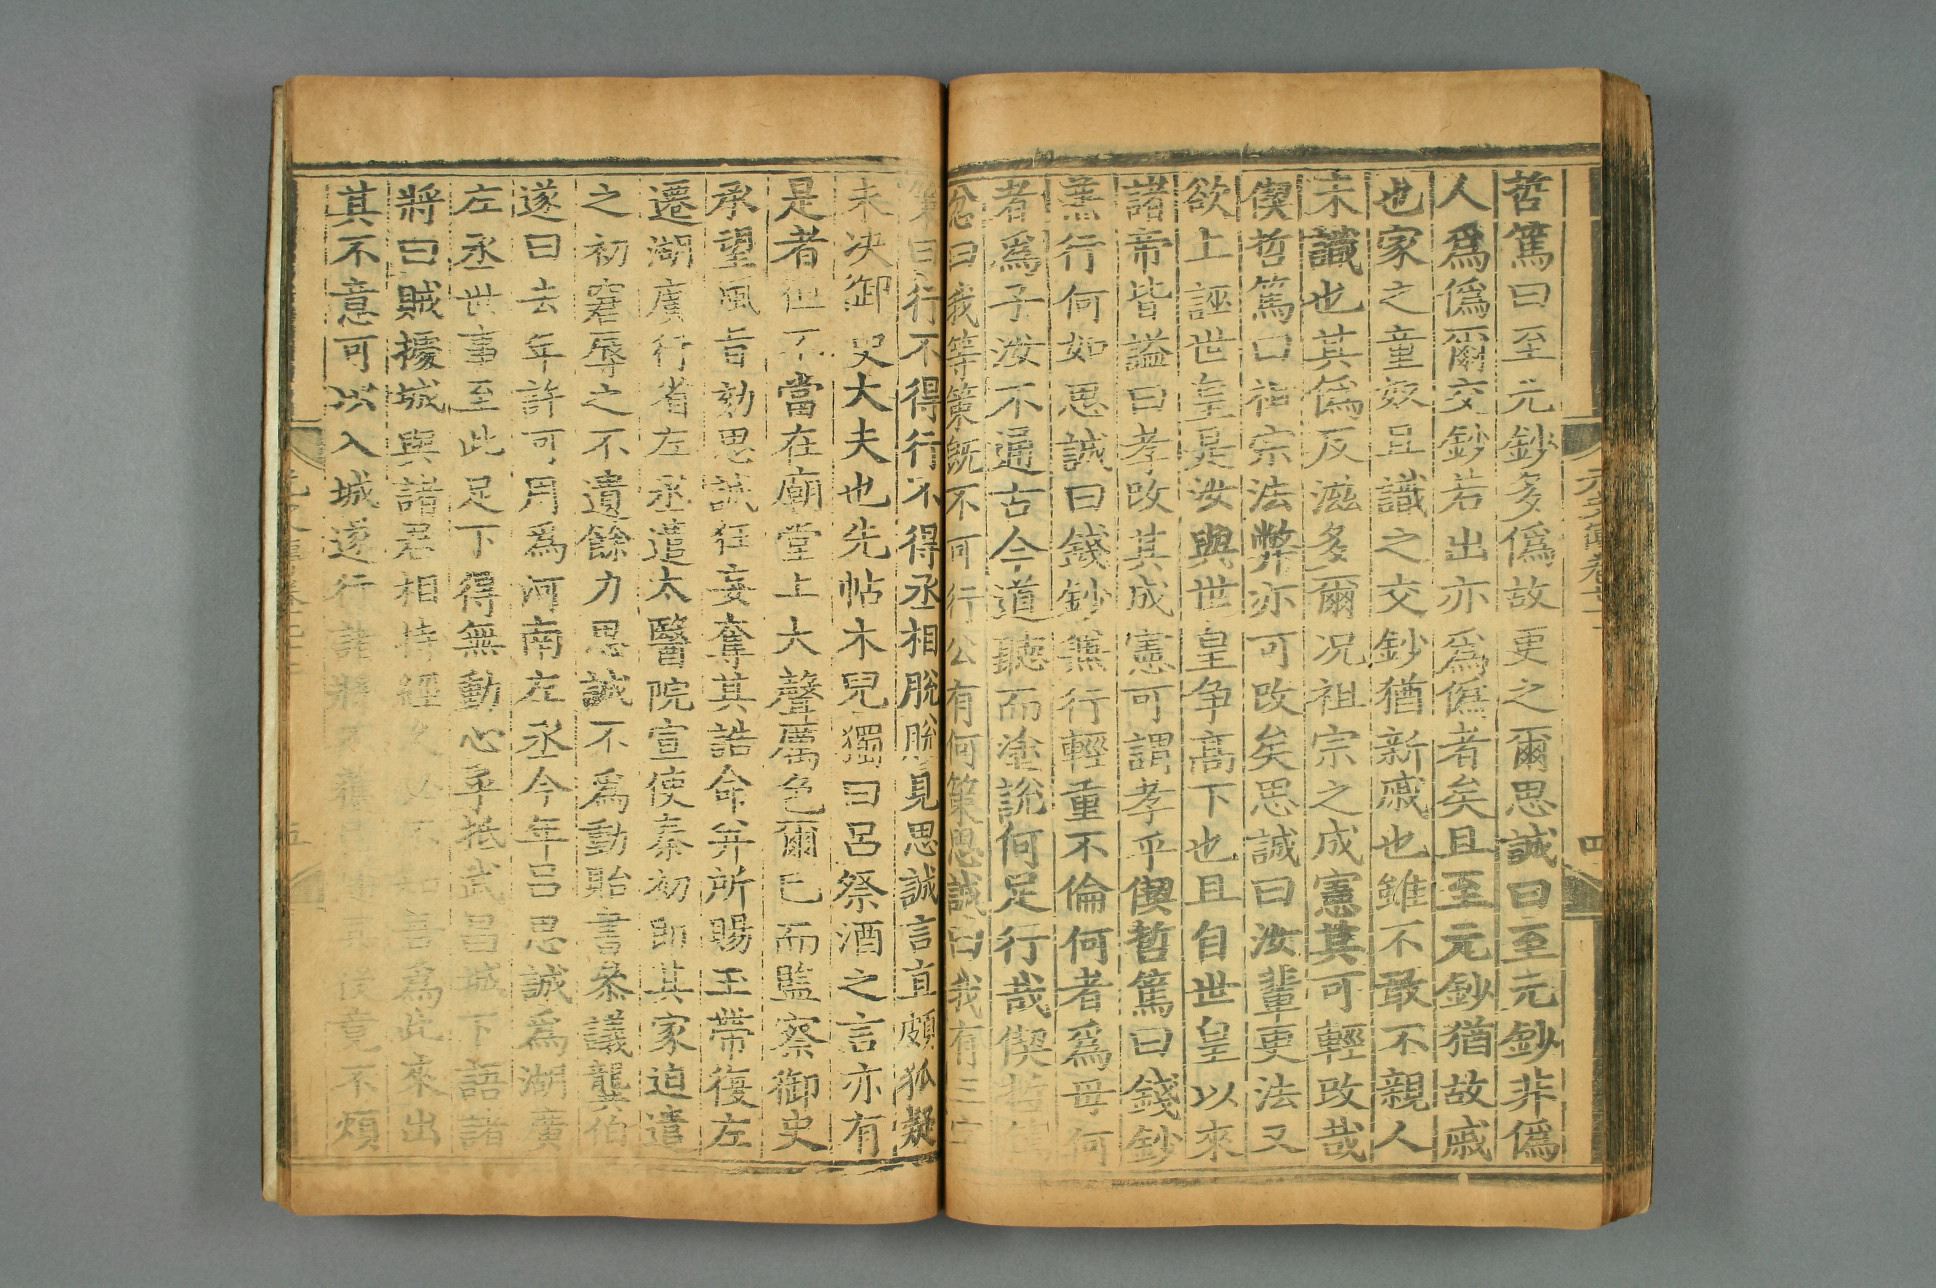 哲篤曰至元鈔多偽故更之爾思誠曰至元鈔非偽
人爲偽爾交鈔若出亦爲偽者矣且至元鈔猶故戚
也家之童奴且識之交鈔猶新戚也雖不敢不親人
未識也其偽反滋多爾况祖宗之成憲其可輕改哉
偰哲篤曰祖宗法弊亦可改矣思誠曰汝輩更法又
欲上誣世皇是汝與世皇争高下也且自世皇以來
諸帝皆謚曰孝改其成憲可謂孝乎偰哲篤曰錢鈔
兼行何如思誠曰錢鈔兼行輕重不倫何者爲母何
者爲子汝不通古今道聽而塗説何足行哉偰哲篤
忿曰我等策既不可行公有何策思誠曰我有三字
策曰行不得行不得丞相脫脫見思誠言直頗狐疑
未决御史大夫也先帖木兒獨曰呂祭酒之言亦有
是者但不當在廟堂上大聲厲色爾已而監察御史
承望風旨劾思誠狂妄奪其誥命并所賜玉帶復左
遷湖廣行省左丞遣太醫院宣使秦初即其家迫遣
之初窘辱之不遺餘力思誠不爲動貽書叅議龔伯
遂曰去年許可用爲河南左丞今年呂思誠爲湖廣
左丞世事至此足下得無動心乎抵武昌城下語諸
將曰賊據城與諸君相持經久必不知吾爲此來出
其不意可以入城遂行諸將不 後竟不煩
元史 卷
四
五